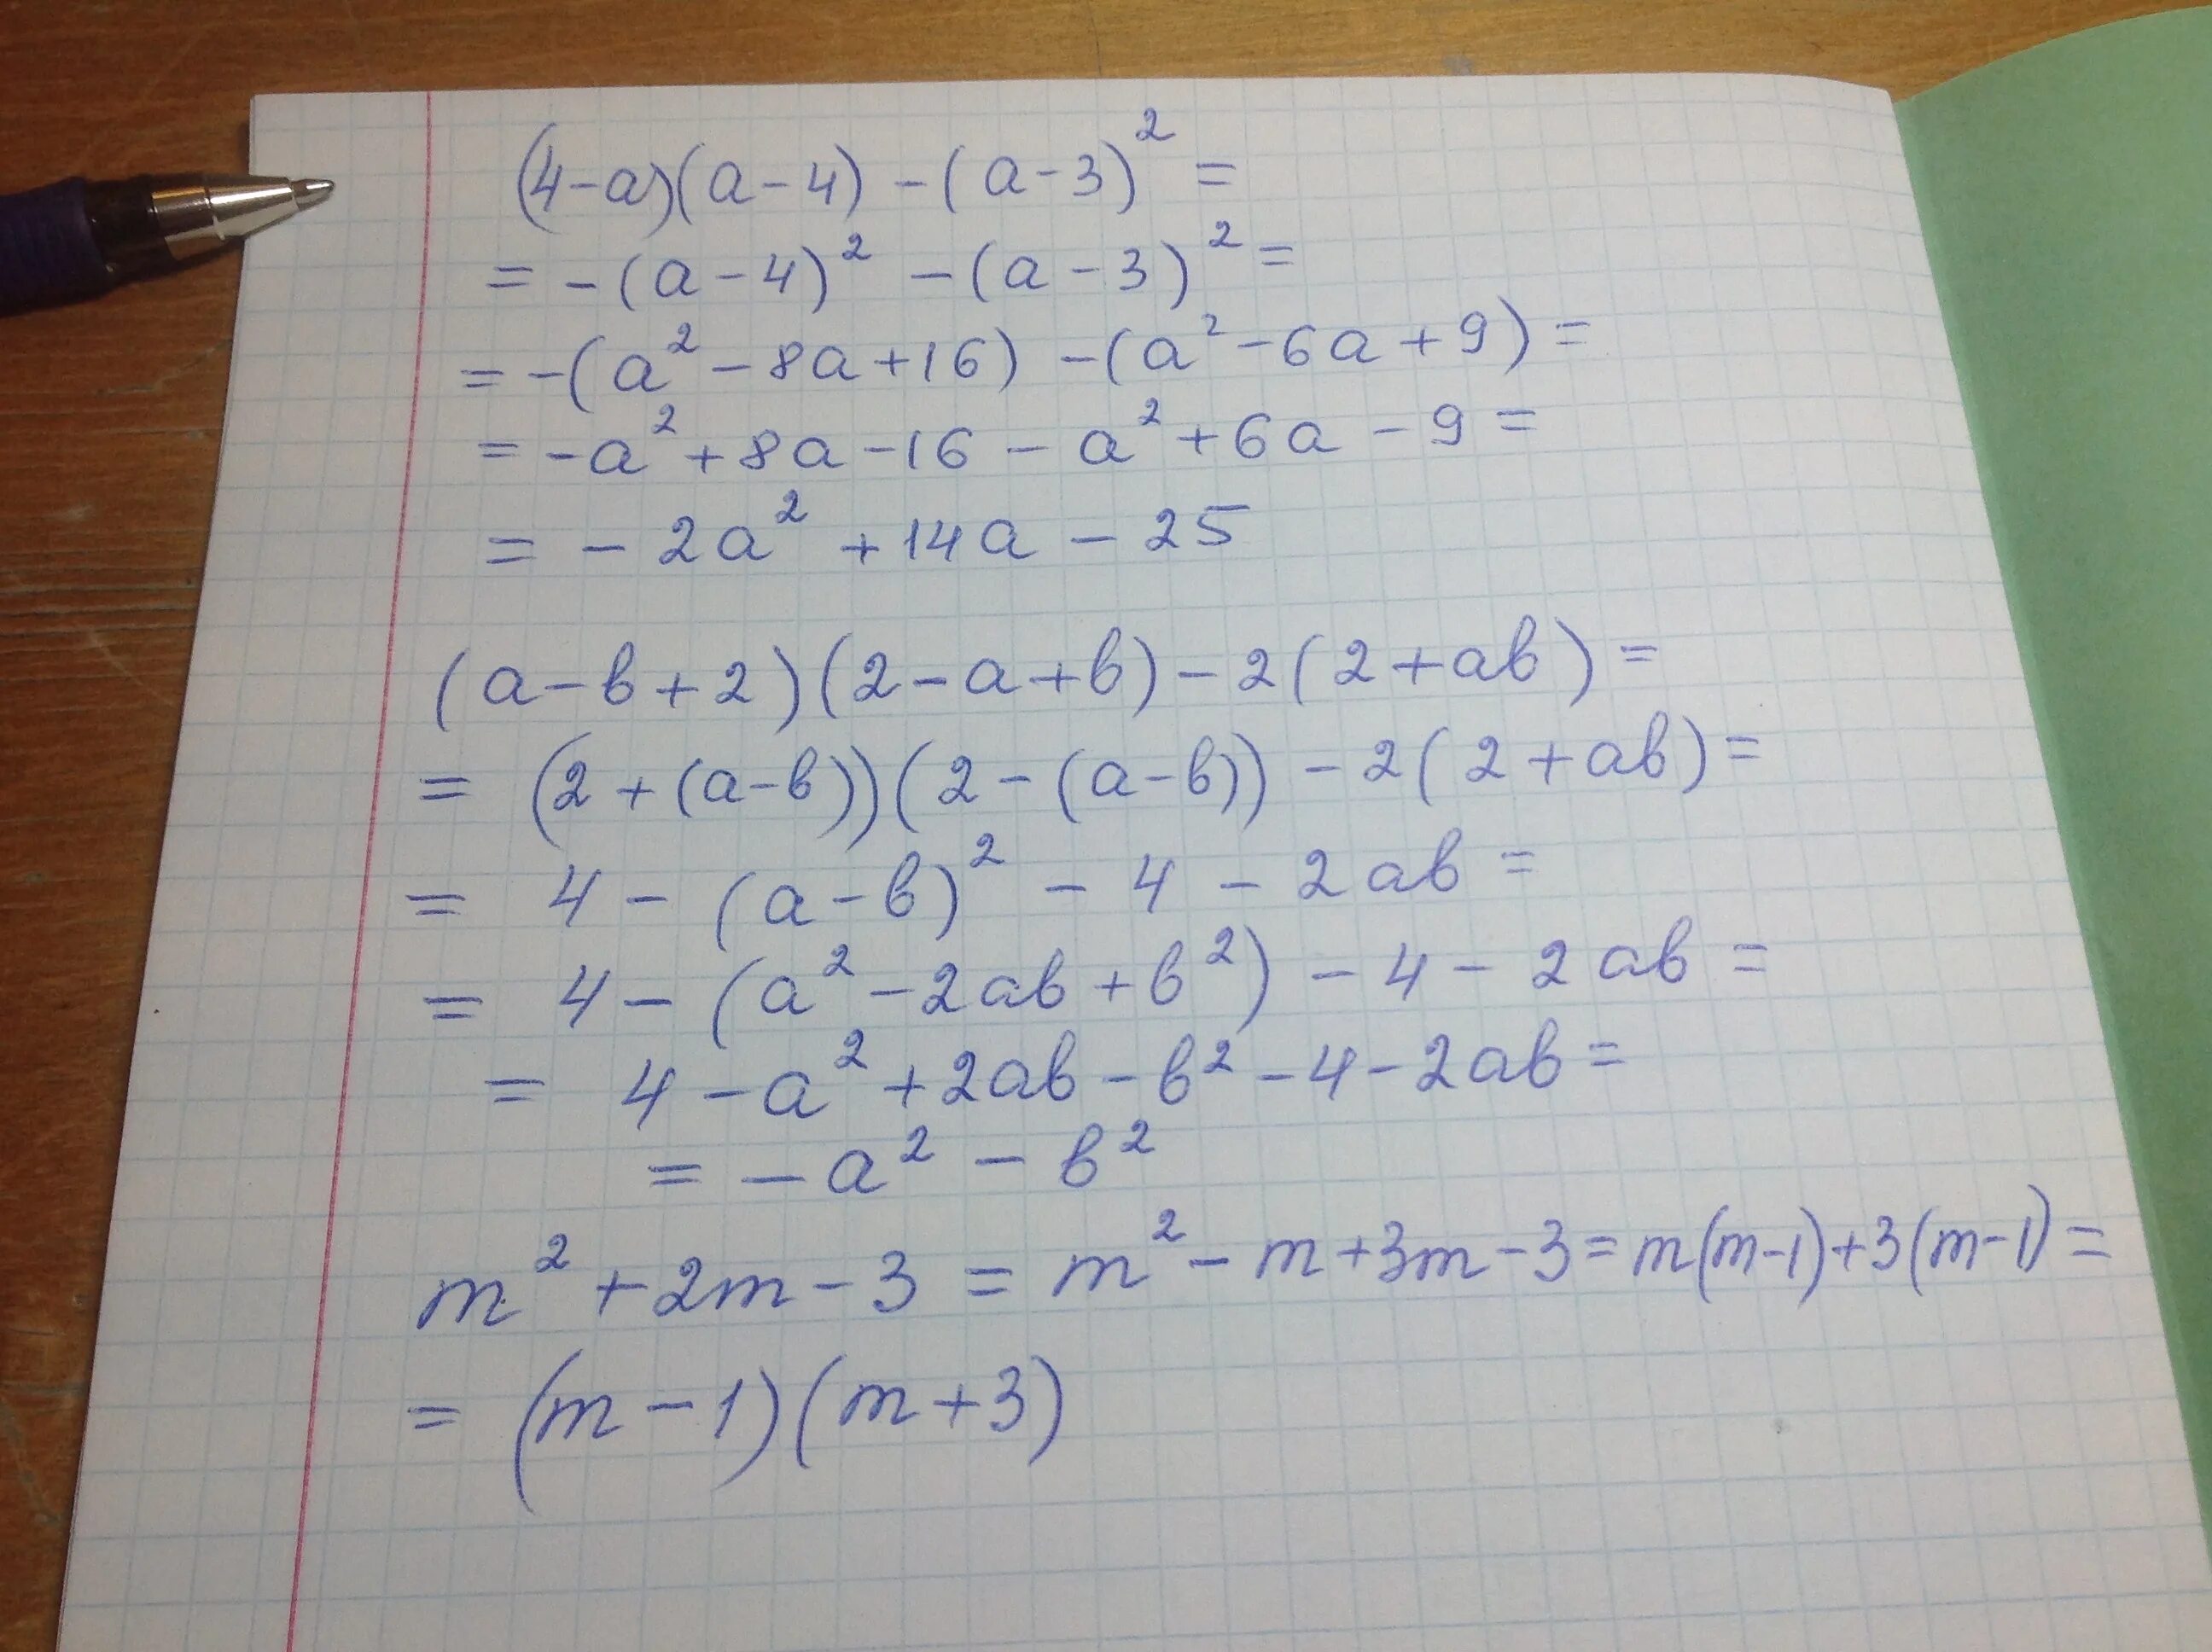 (4-a)(a-4) - (a-3)² =
= -(a-4)² - (a-3)² =
= -(a² - 8a + 16) - (a² - 6a + 9) =
= -a² + 8a - 16 - a² + 6a - 9 =
= - 2a² + 14a - 25
(a - b + 2)(2 - a + b) - 2(2 + ab) =
= (2 + (a-b))(2 - (a-b)) - 2(2 + ab) =
= 4 - (a-b)² - 4 - 2ab =
= 4 - (a² - 2ab + b²) - 4 - 2ab =
= 4 - a² + 2ab - b² - 4 - 2ab =
= - a² - b²
m² + 2m - 3 = m² - m + 3m - 3 = m(m-1) + 3(m-1) =
= (m - 1)(m + 3)